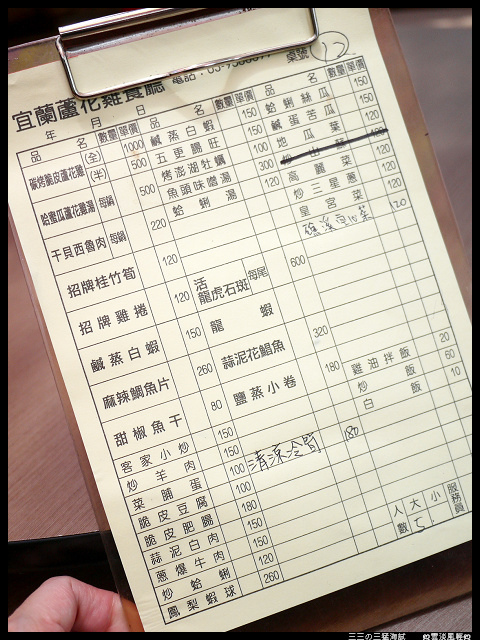 宜蘭蘆花雞食廳 電話:03- 桌號 12
年 月 日
品名 數量 單價
碳烤脆皮蘆花雞 (全) 1000
(半) 500
哈蜜瓜蘆花雞湯 每鍋 500
干貝西魯肉 每鍋 220
招牌桂竹筍 120
招牌雞捲 120
鹹蒸白蝦 150
麻辣鯛魚片 260
甜椒魚干 80
客家小炒 150
炒羊肉 150
菜脯蛋 100
脆皮豆腐 100
脆皮肥腸 180
蒜泥白肉 150
蔥爆牛肉 150
炒蛤蜊 120
鳳梨蝦球 260
品名 數量 單價
鹹蒸白蝦 150
五更腸旺 150
烤澎湖牡蠣 100
魚頭味噌湯 300
蛤蜊湯 120
活龍虎石斑 每尾 600
龍蝦
蒜泥花鯧魚 320
鹽蒸小卷 180
清涼冷筍 180
品名 數量 單價
蛤蜊絲瓜 150
鹹蛋苦瓜 150
地瓜葉 120
高麗菜 120
炒三星蔥 120
皇宮菜 120
礁溪空心菜 120
雞油拌飯 20
炒飯 60
白飯 10
人數 大 小 服務員
三三の三猛海試 @雲淡風輕@